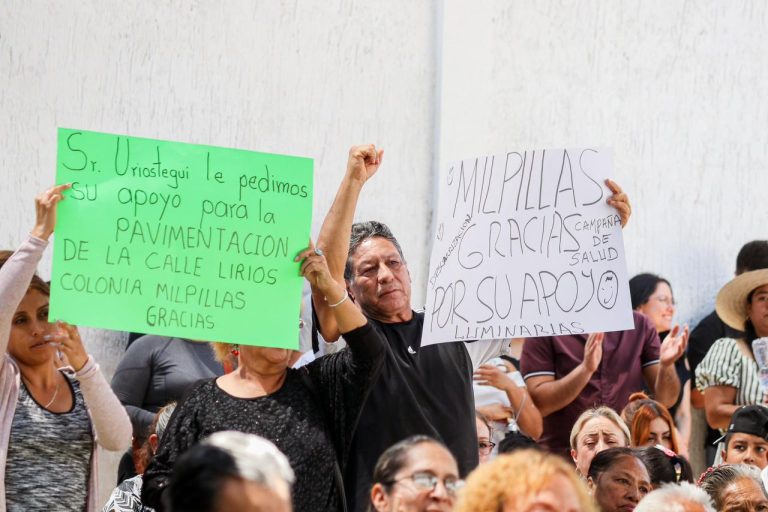 Sr. Uriostegui le pedimos
su apoyo para la
PAVIMENTACION
DE LA CALLE LIRIOS
COLONIA MILPILLAS
GRACIAS
MILPILLAS
GRACIAS
CAMPAÑA
DE
SALUD
POR SU APOYO
LUMINARIAS